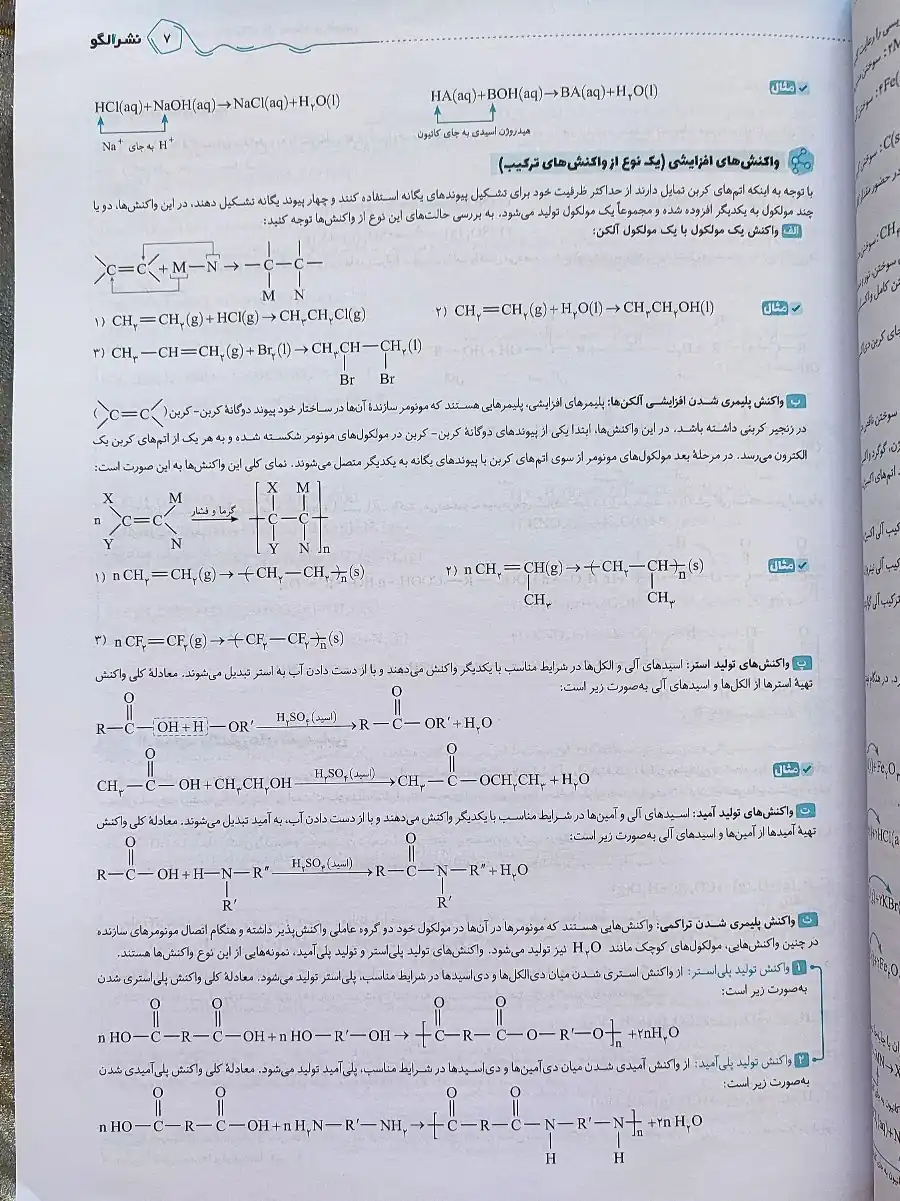 نشر الگو ۷
مثال
HA(aq)+BOH(aq)→BA(aq)+H₂O(l)
هیدروژن اسیدی به جای کاتیون
HCl(aq)+NaOH(aq)→NaCl(aq)+H₂O(l)
H⁺ به جای Na⁺
واکنش‌های افزایشی (یک نوع از واکنش‌های ترکیب)
با توجه به اینکه اتم‌های کربن تمایل دارند از حداکثر ظرفیت خود برای تشکیل پیوندهای یگانه استفاده کنند و چهار پیوند یگانه تشکیل دهند، در این واکنش‌ها، دو یا
چند مولکول به یکدیگر افزوده شده و مجموعاً یک مولکول تولید می‌شود. به بررسی حالت‌های این نوع از واکنش‌ها توجه کنید:
الف واکنش یک مولکول با یک مولکول آلکن:
C=C + M—N → —C—C—
M N
مثال
۱) CH₂=CH₂(g)+HCl(g)→CH₃CH₂Cl(g)
۲) CH₂=CH₂(g)+H₂O(l)→CH₃CH₂OH(l)
۳) CH₃—CH=CH₂(g)+Br₂(l)→CH₃CH—CH₂(l)
Br Br
ب واکنش پلیمری شدن افزایشی آلکن‌ها: پلیمرهای افزایشی، پلیمرهایی هستند که مونومر سازندهٔ آن‌ها در ساختار خود پیوند دوگانهٔ کربن- کربن (C=C)
در زنجیر کربنی داشته باشد. در این واکنش‌ها، ابتدا یکی از پیوندهای دوگانهٔ کربن- کربن در مولکول‌های مونومر شکسته شده و به هر یک از اتم‌های کربن یک
الکترون می‌رسد. در مرحلهٔ بعد مولکول‌های مونومر از سوی اتم‌های کربن با پیوندهای یگانه به یکدیگر متصل می‌شوند. نمای کلی این واکنش‌ها به این صورت است:
X M X M
n C=C گرما و فشار → [—C—C—]n
Y N Y N
مثال
۱) nCH₂=CH₂(g)→(CH₂—CH₂)n(s)
۲) nCH₂=CH(g)→(CH₂—CH)n(s)
CH₃ CH₃
۳) nCF₂=CF₂(g)→(CF₂—CF₂)n(s)
پ واکنش‌های تولید استر: اسیدهای آلی و الکل‌ها در شرایط مناسب با یکدیگر واکنش می‌دهند و با از دست دادن آب به استر تبدیل می‌شوند. معادلهٔ کلی واکنش
تهیهٔ استرها از الکل‌ها و اسیدهای آلی به‌صورت زیر است:
O O
R—C—OH+H—OR′ H₂SO₄(اسید) → R—C—OR′+H₂O
مثال
O O
CH₃—C—OH+CH₃CH₂OH H₂SO₄(اسید) → CH₃—C—OCH₂CH₃+H₂O
ت واکنش‌های تولید آمید: اسیدهای آلی و آمین‌ها در شرایط مناسب با یکدیگر واکنش می‌دهند و با از دست دادن آب، به آمید تبدیل می‌شوند. معادلهٔ کلی واکنش
تهیهٔ آمیدها از آمین‌ها و اسیدهای آلی به‌صورت زیر است:
O O
R—C—OH+H—N—R″ H₂SO₄(اسید) → R—C—N—R″+H₂O
R′ R′
ث واکنش پلیمری شدن تراکمی: واکنش‌هایی هستند که مونومرها در آن‌ها در مولکول خود دو گروه عاملی واکنش‌پذیر داشته و هنگام اتصال مونومرهای سازنده
در چنین واکنش‌هایی، مولکول‌های کوچک مانند H₂O نیز تولید می‌شود. واکنش‌های تولید پلی‌استر و تولید پلی‌آمید، نمونه‌هایی از این نوع واکنش‌ها هستند.
۱ واکنش تولید پلی‌استر: از واکنش استری شدن میان دی‌الکل‌ها و دی‌اسیدها در شرایط مناسب، پلی‌استر تولید می‌شود. معادلهٔ کلی واکنش پلی‌استری شدن
به‌صورت زیر است:
O O O O
nHO—C—R—C—OH+nHO—R′—OH→[C—R—C—O—R′—O]n+۲nH₂O
۲ واکنش تولید پلی‌آمید: از واکنش آمیدی شدن میان دی‌آمین‌ها و دی‌اسیدها در شرایط مناسب، پلی‌آمید تولید می‌شود. معادلهٔ کلی واکنش پلی‌آمیدی شدن
به‌صورت زیر است:
O O O O
nHO—C—R—C—OH+nH₂N—R′—NH₂→[C—R—C—N—R′—N]n+۲nH₂O
H H